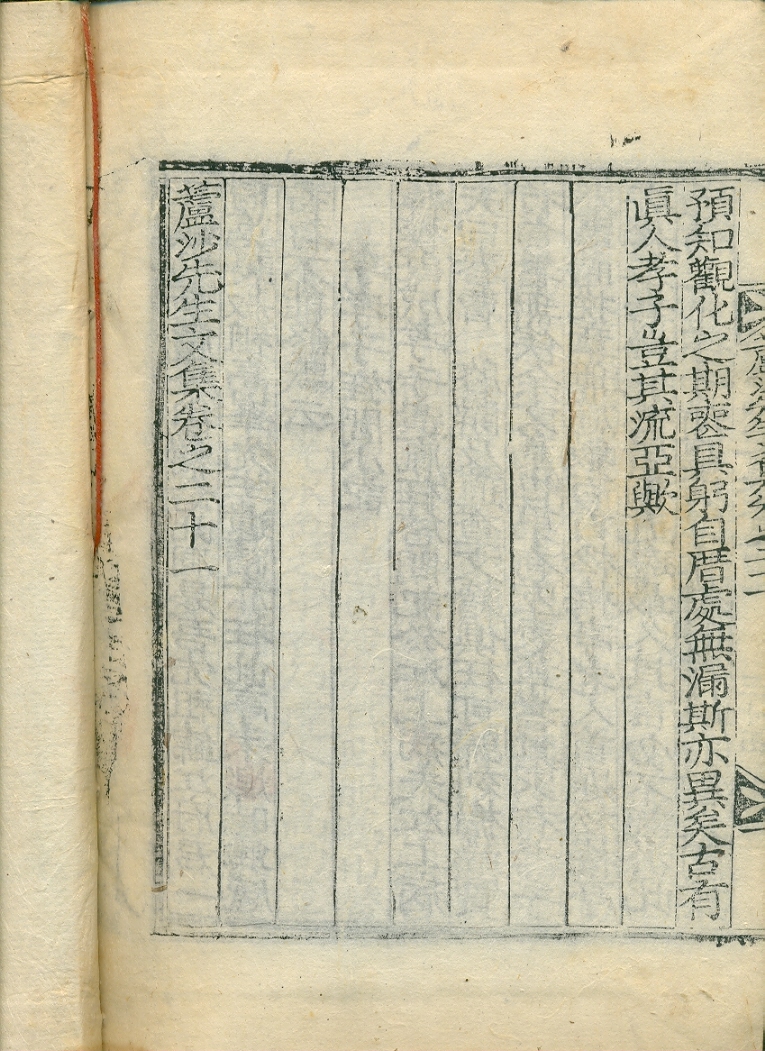 預知觀化之期喪具躬自厝處無漏斯亦異矣古有
眞人孝子豈其流亞歟
蘆沙先生文集卷之二十一